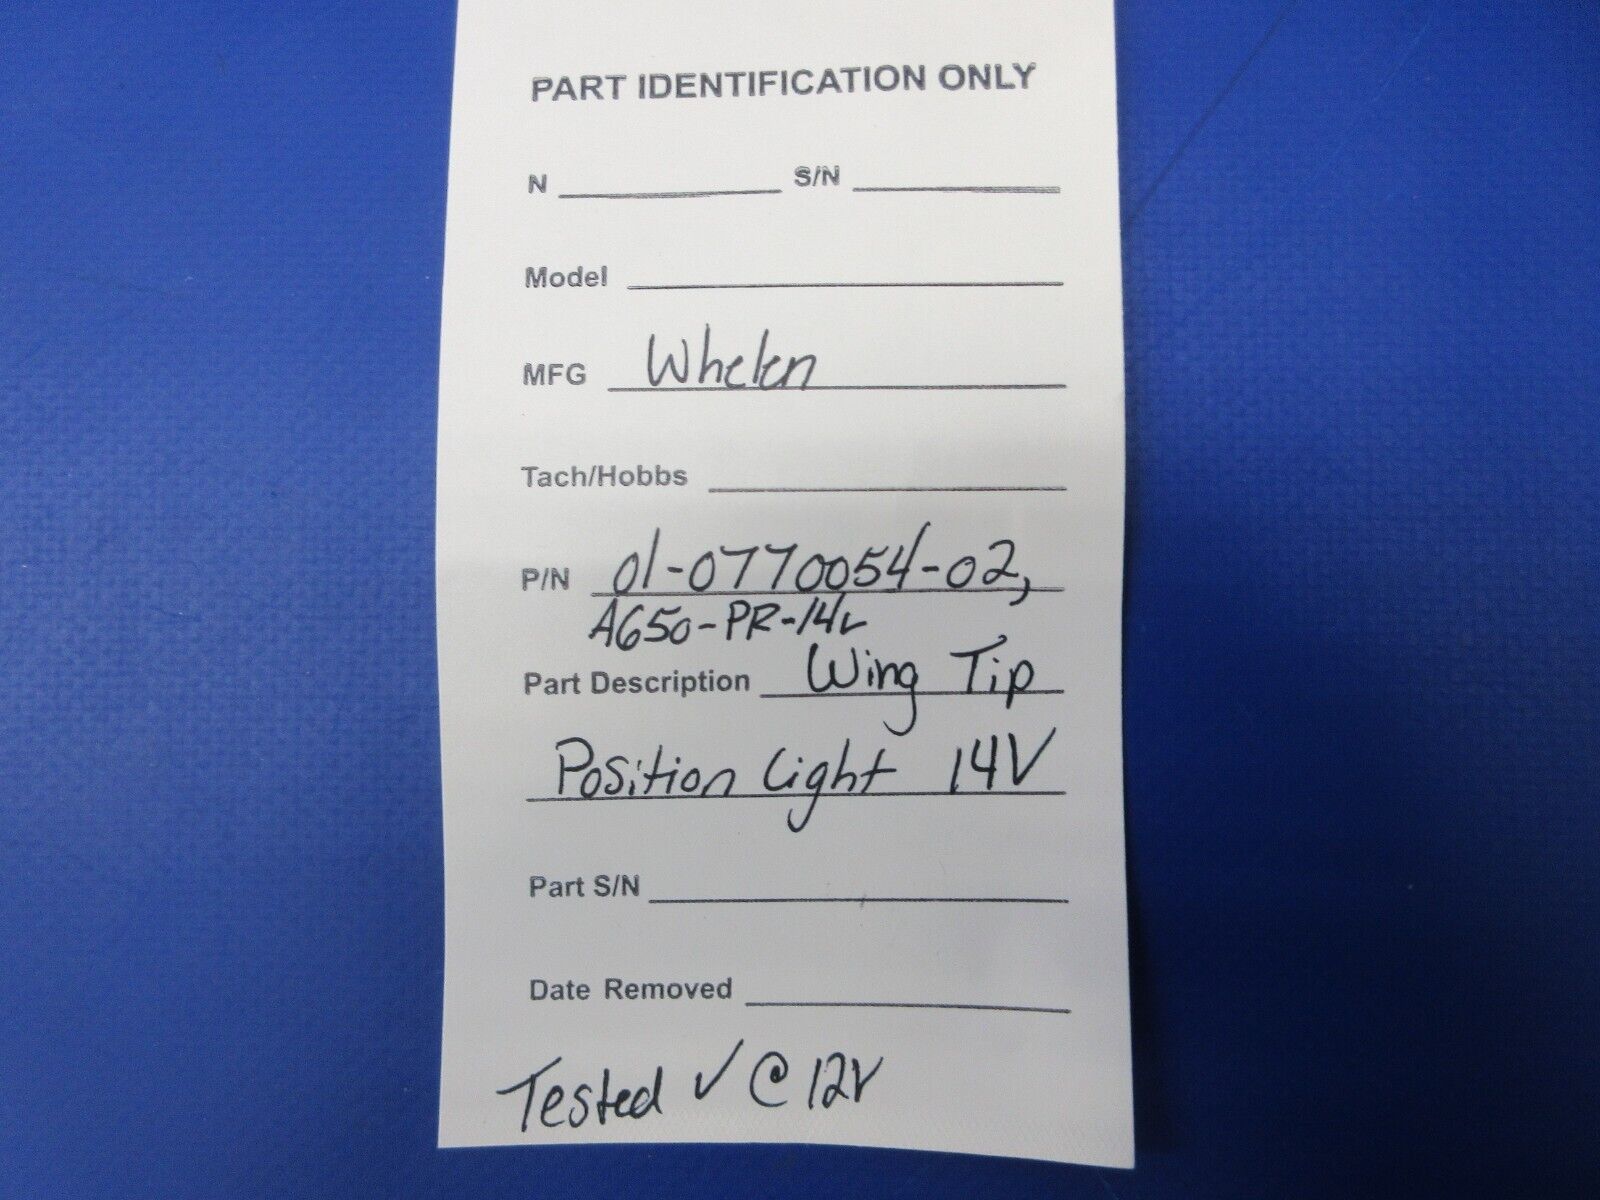 PART IDENTIFICATION ONLY
N S/N
Model
MFG Whelen
Tach/Hobbs
P/N 01-0770054-02,
A650-PR-14V
Part Description Wing Tip
Position Light 14V
Part S/N
Date Removed
Tested ✓ @ 12V